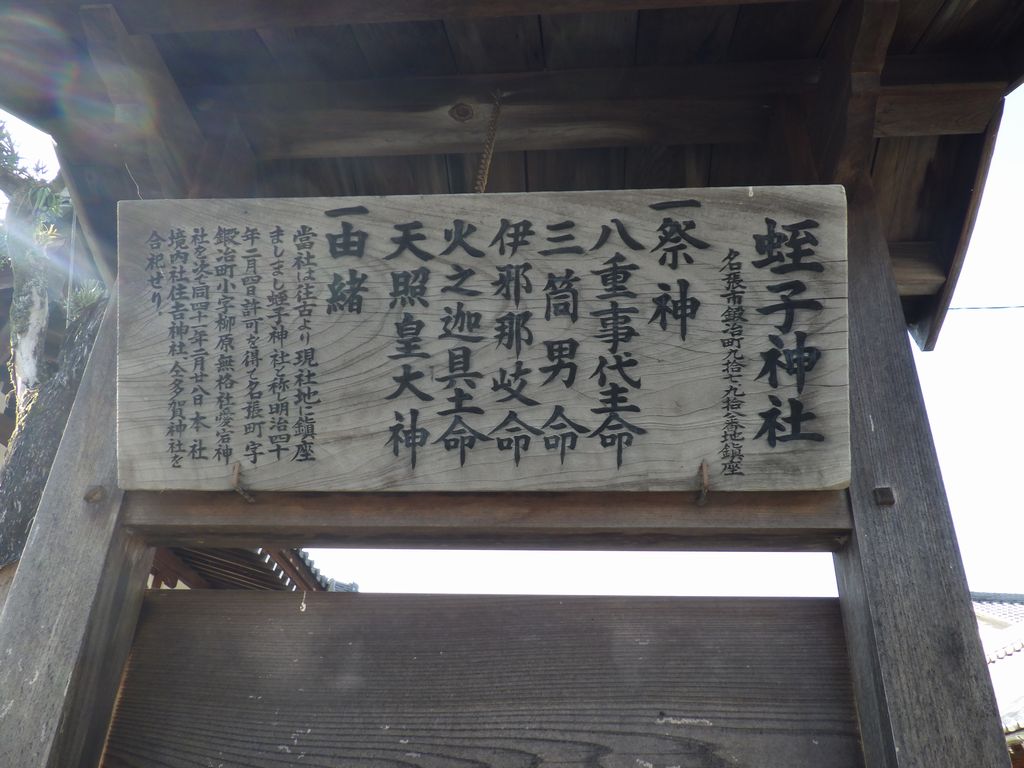 蛭子神社
名張市鍛冶町九拾七、九拾八番地鎮座
一祭神
八重事代主命
三筒男命
伊邪那岐命
火之迦具土命
天照皇大神
一由緒
當社は往古より現社地に鎮座
ましまし蛭子神社と称し明治四十
年二月四日許可を得て名張町字
鍛冶町小字柳原無格社愛宕神
社を次同四十一年二月廿八日本社
境内社住吉神社、仝多賀神社を
合祀せり。